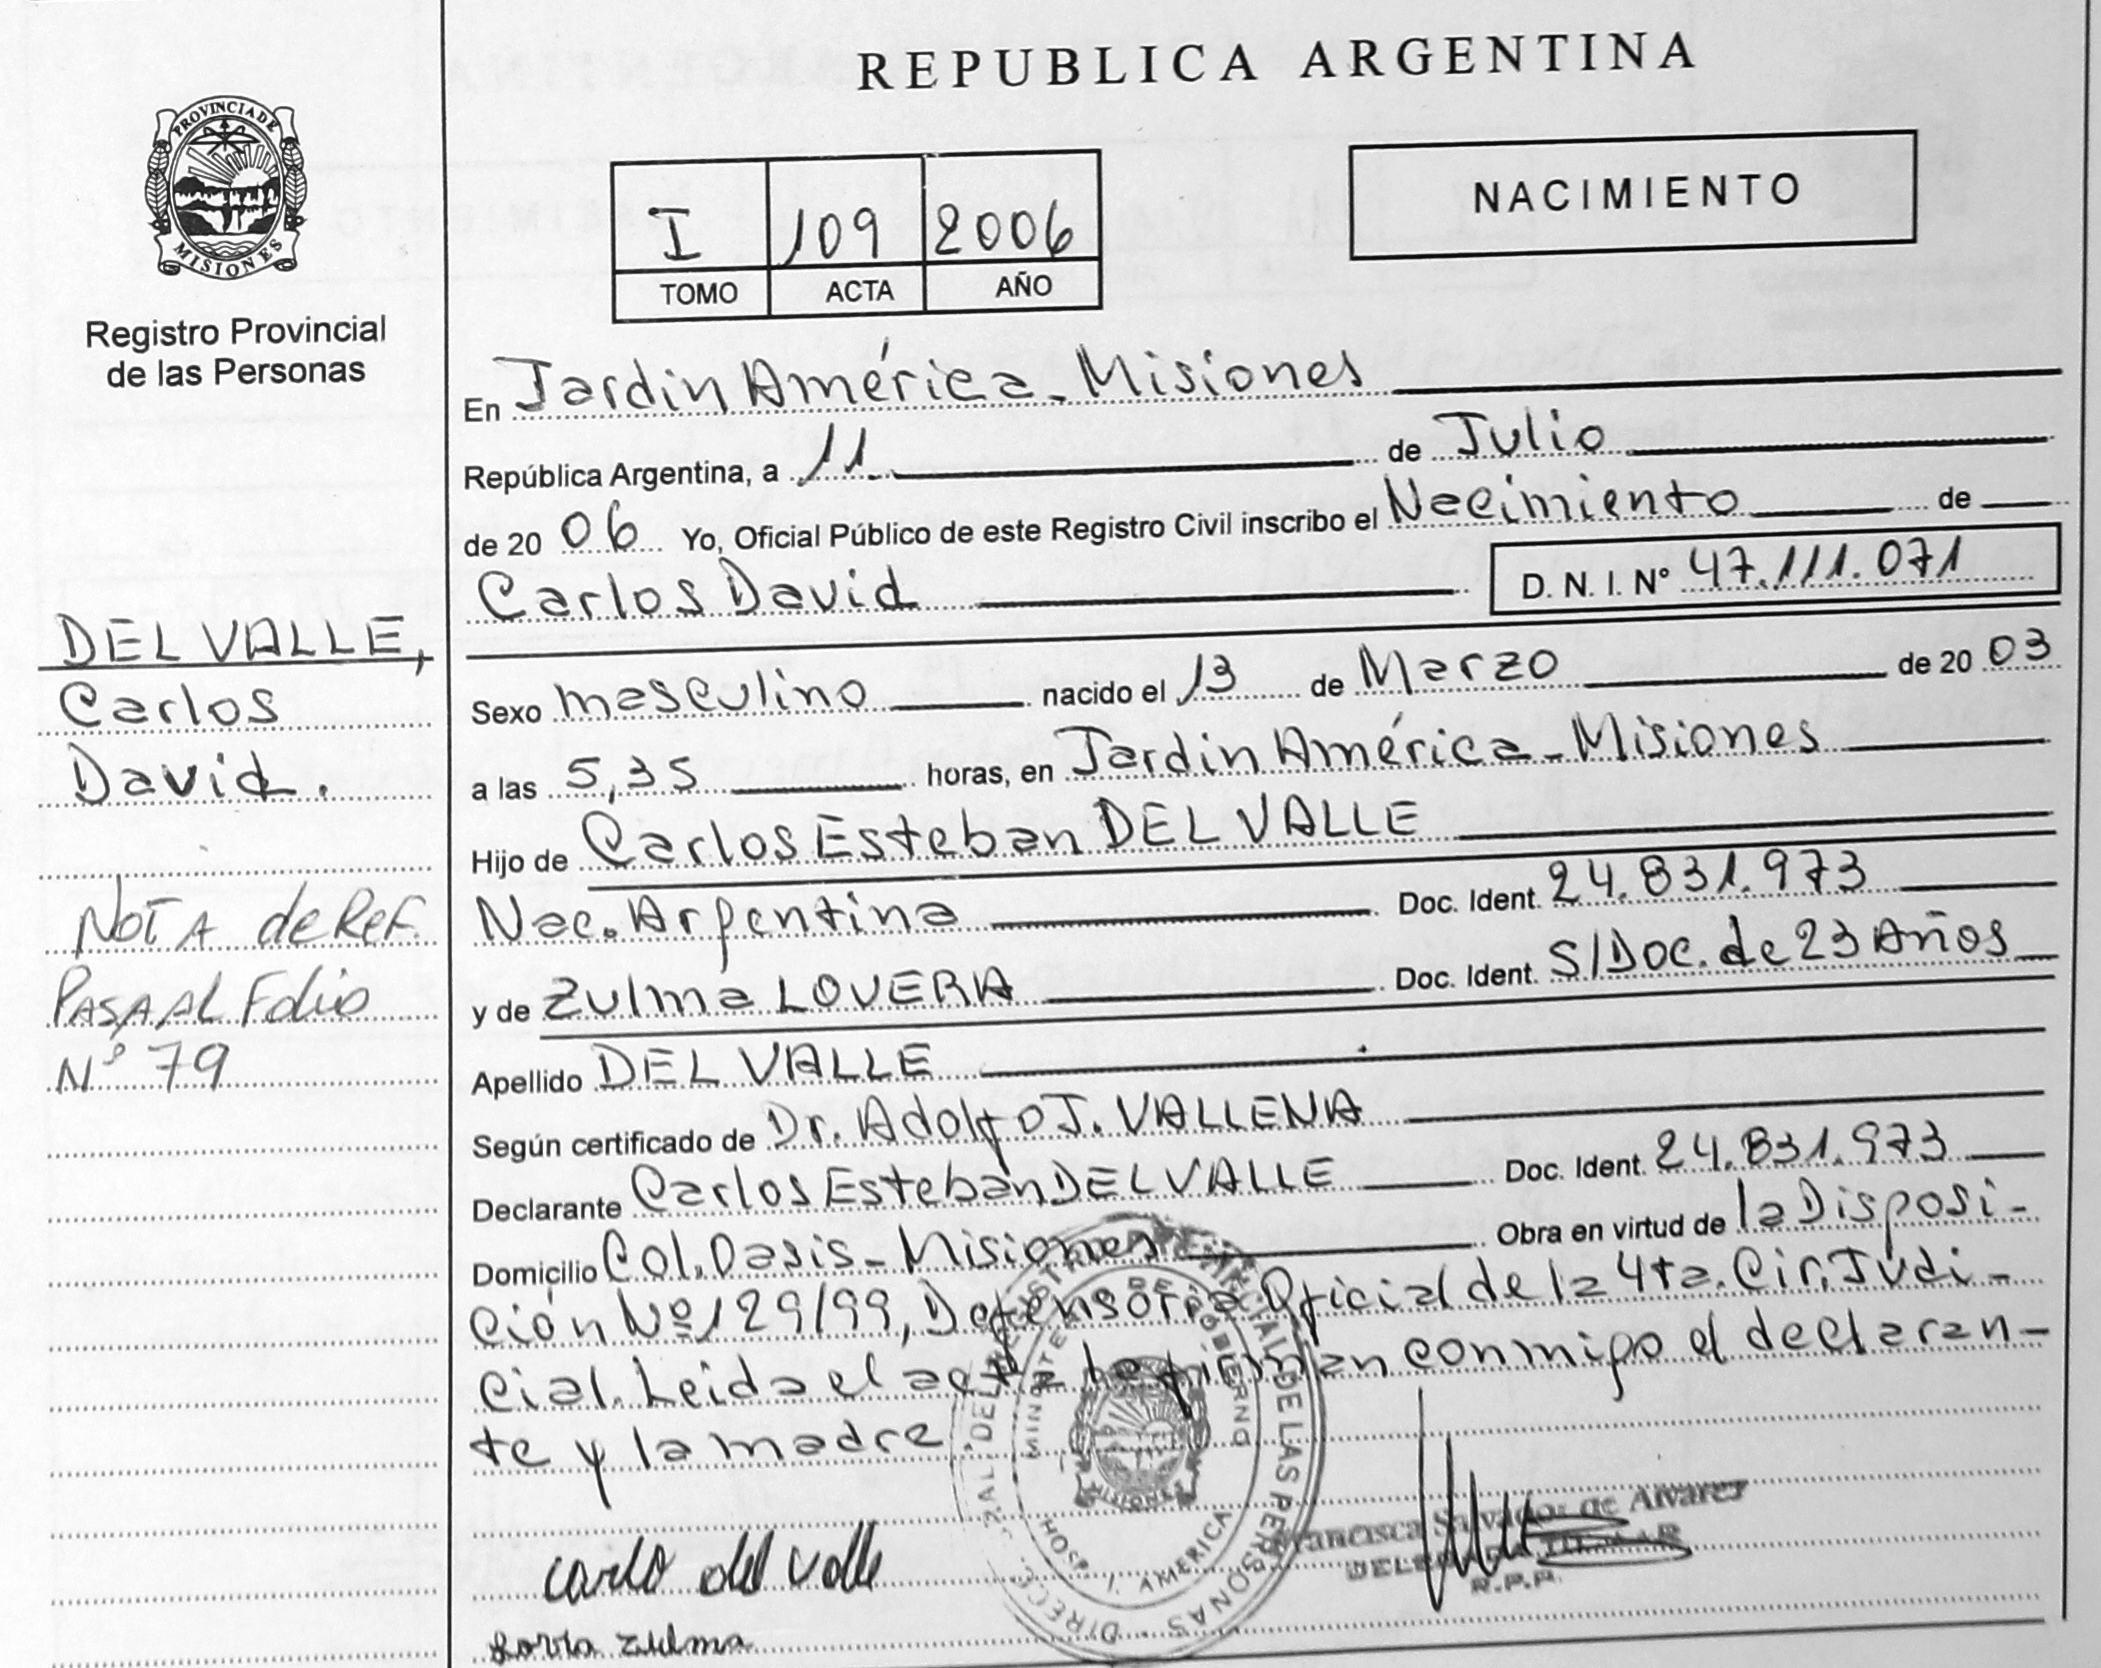 REPUBLICA ARGENTINA
PROVINCIA DE
MISIONES
Registro Provincial
de las Personas
I 109 2006
TOMO ACTA AÑO
NACIMIENTO
En Jardín América - Misiones
República Argentina, a 11 de Julio
de 20 06 Yo, Oficial Público de este Registro Civil inscribo el Nacimiento de
Carlos David D. N. I. Nº 47.111.071
DEL VALLE,
Carlos
David.
Sexo masculino nacido el 13 de Marzo de 20 03
a las 5,35 horas, en Jardín América - Misiones
Hijo de Carlos Esteban DEL VALLE
NOTA de Ref.
PASA AL Folio
Nº 79
Nac. Argentina Doc. Ident. 24.831.973
y de Zulma LOVERA Doc. Ident. S/Doc. de 23 Años
Apellido DEL VALLE
Según certificado de Dr. Adolfo J. VALLENA
Declarante Carlos Esteban DEL VALLE Doc. Ident. 24.831.973
Domicilio Col. Oasis - Misiones Obra en virtud de la Disposi-
ción Nº 129/99, Defensoría Oficial de la 4ta. Cir. Judi-
cial. Leida el acta la firman conmigo el declaran-
te y la madre.
MINISTERIO DE GOBIERNO
MISIONES
HOSP. J. AMERICA
Francisca Salvador de Alvarez
R.P.P.
carlo del valle
Zulma